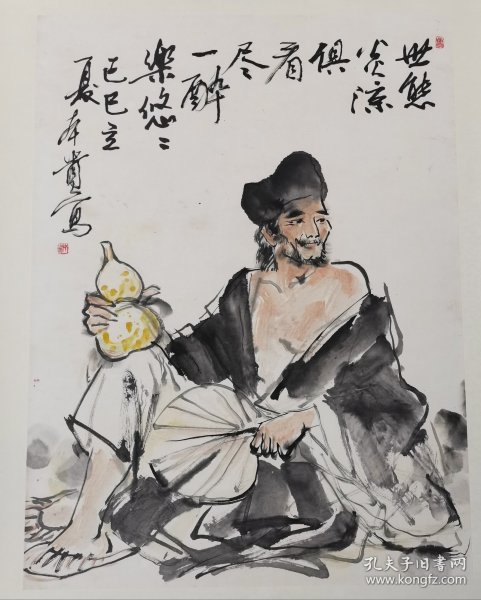 世態
炎涼
俱
看
尽
一醉
樂悠〻
己巳立
夏本貴写
孔夫子旧书网
www.kongfz.com